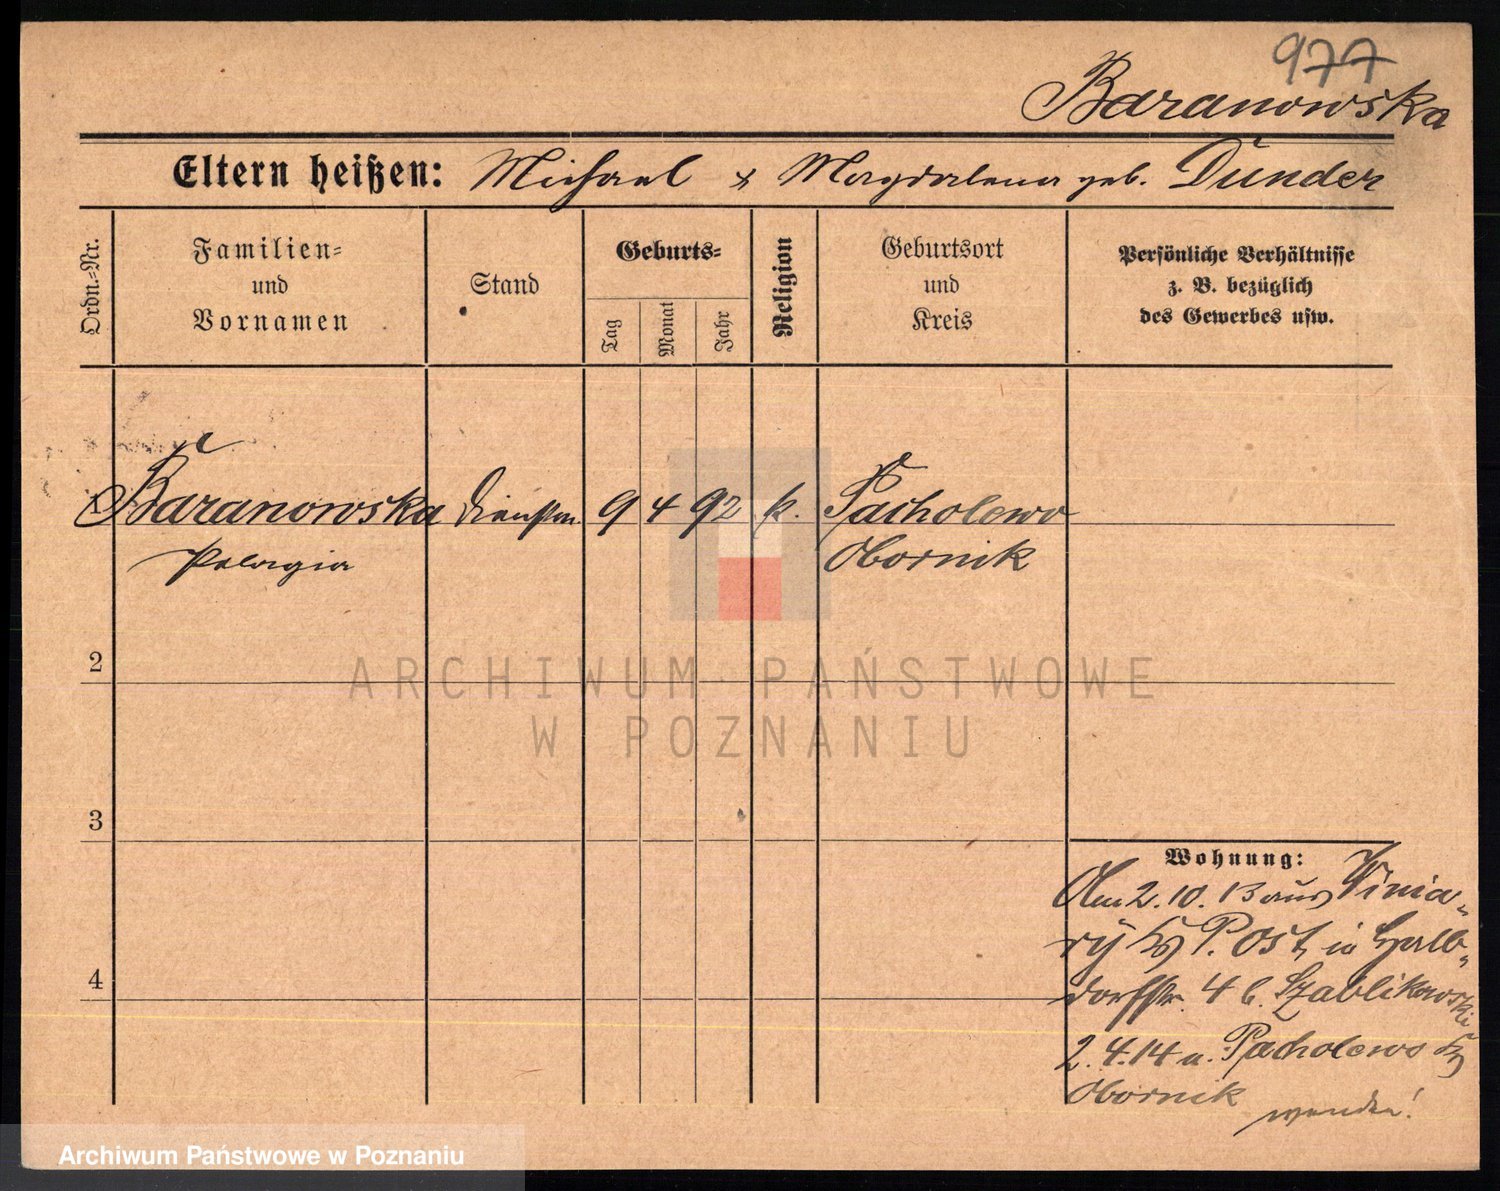 977
Baranowska
Eltern heißen: Michael & Magdalena geb. Dunder
Ordn.-Nr.
Familien-
und
Vornamen
Stand
Geburts-
Tag
Monat
Jahr
Religion
Geburtsort
und
Kreis
Persönliche Verhältnisse
z. B. bezüglich
des Gewerbes usw.
1 Baranowska Dienstm. 9 4 92 k. Pacholewo
Pelagia Obornik
2
3
4
ARCHIWUM PAŃSTWOWE
W POZNANIU
Wohnung:
Am 2.10.13 aus Winia-
ry P. Ost, in Halb-
dorfstr. 4 b. Szablikowski
2.4.14 n. Pacholewo
Obornik
wenden!
Archiwum Państwowe w Poznaniu